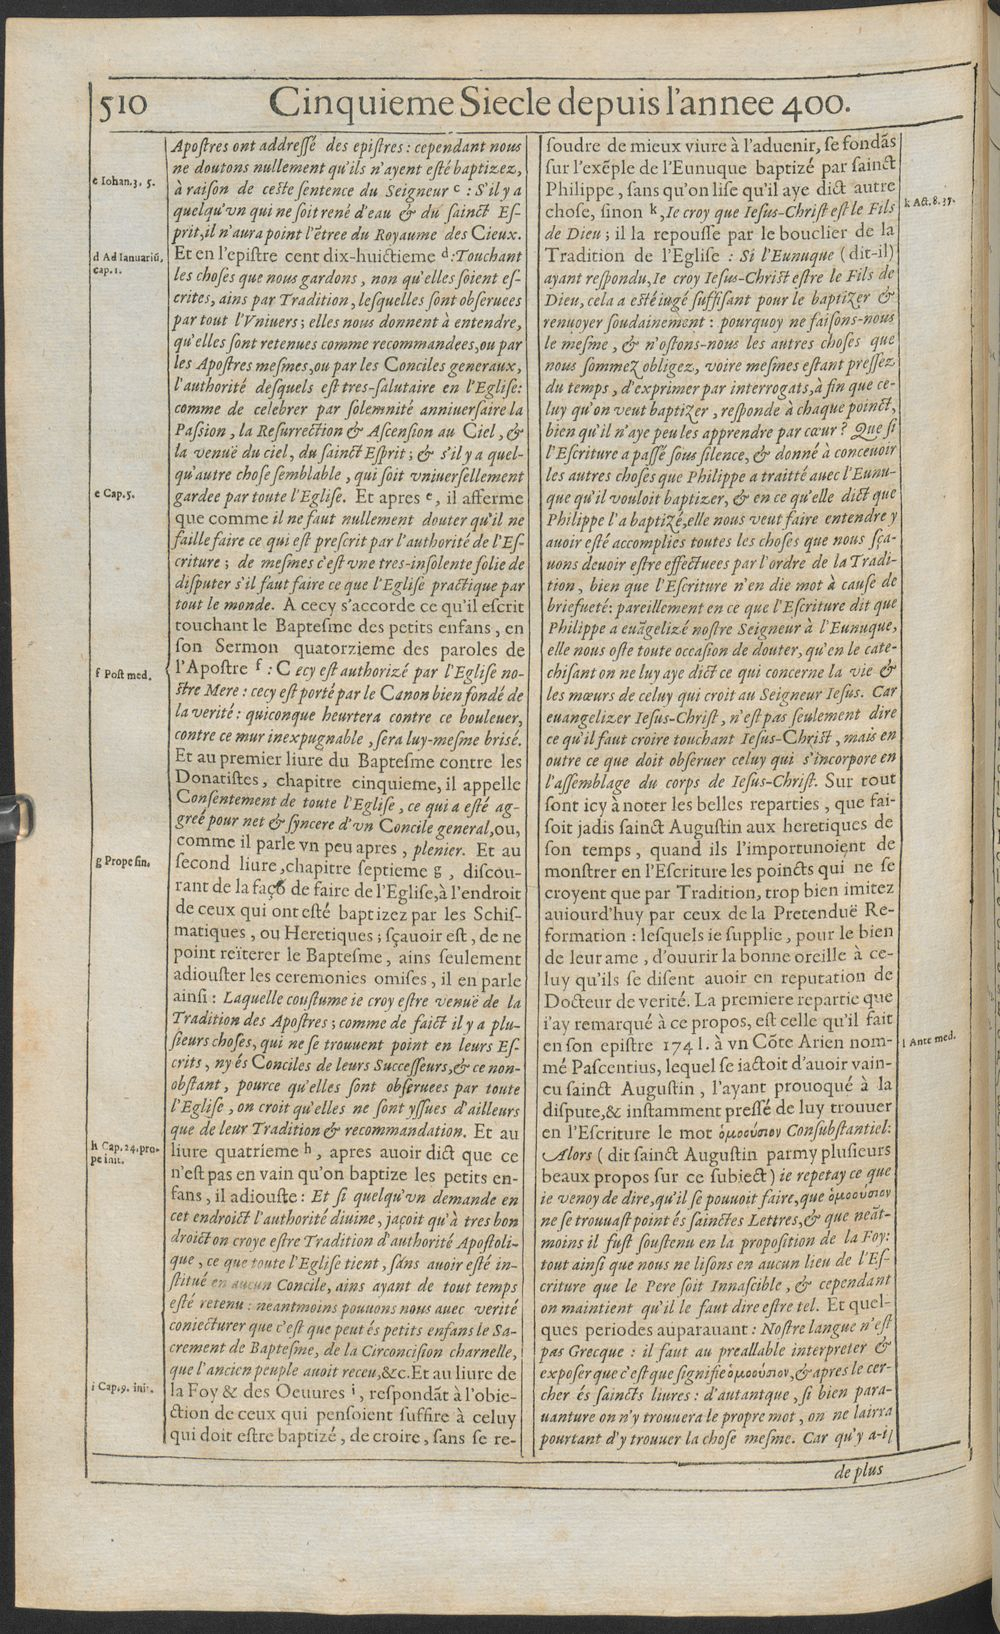 510 Cinquieme Siecle depuis l'annee 400.
Apoſtres ont addreſſé des epiſtres : cependant nous
ne doutons nullement qu'ils n'ayent eſté baptizez,
c Iohan. 3. 5.
à raiſon de ceſte ſentence du Seigneur c : S'il y a
quelqu'vn qui ne ſoit rené d'eau & du ſainct Eſ-
prit, il n'aura point l'ētree du Royaume des Cieux.
d Ad Ianuariū,
cap. 1.
Et en l'epiſtre cent dix-huictieme d : Touchant
les choſes que nous gardons, non qu'elles ſoient eſ-
crites, ains par Tradition, leſquelles ſont obſeruees
par tout l'Vniuers ; elles nous donnent à entendre,
qu'elles ſont retenues comme recommandees, ou par
les Apoſtres meſmes, ou par les Conciles generaux,
l'authorité deſquels eſt tres-ſalutaire en l'Egliſe:
comme de celebrer par ſolemnité anniuerſaire la
Paſsion, la Reſurrection & Aſcenſion au Ciel, &
la venuë du ciel, du ſainct Eſprit ; & s'il y a quel-
qu'autre choſe ſemblable, qui ſoit vniuerſellement
e Cap. 5.
gardee par toute l'Egliſe. Et apres e, il afferme
que comme il ne faut nullement douter qu'il ne
faille faire ce qui eſt preſcrit par l'authorité de l'Eſ-
criture ; de meſmes c'eſt vne tres-inſolente folie de
diſputer s'il faut faire ce que l'Egliſe practique par
tout le monde. A cecy s'accorde ce qu'il eſcrit
touchant le Bapteſme des petits enfans, en
ſon Sermon quatorzieme des paroles de
f Poſt med.
l'Apoſtre f : Cecy eſt authorizé par l'Egliſe no-
ſtre Mere : cecy eſt porté par le Canon bien fondé de
la verité : quiconque heurtera contre ce bouleuer,
contre ce mur inexpugnable, ſera luy-meſme briſé.
Et au premier liure du Bapteſme contre les
Donatiſtes, chapitre cinquieme, il appelle
Conſentement de toute l'Egliſe, ce qui a eſté ag-
greé pour net & ſyncere d'vn Concile general, ou,
comme il parle vn peu apres, plenier. Et au
g Prope fin.
ſecond liure, chapitre ſeptieme g, diſcou-
rant de la façõ de faire de l'Egliſe, à l'endroit
de ceux qui ont eſté baptizez par les Schiſ-
matiques, ou Heretiques ; ſçauoir eſt, de ne
point reïterer le Bapteſme, ains ſeulement
adiouſter les ceremonies omiſes, il en parle
ainſi : Laquelle couſtume ie croy eſtre venuë de la
Tradition des Apoſtres ; comme de faict il y a plu-
ſieurs choſes, qui ne ſe trouuent point en leurs Eſ-
crits, ny és Conciles de leurs Succeſſeurs, & ce non-
obſtant, pource qu'elles ſont obſeruees par toute
l'Egliſe, on croit qu'elles ne ſont yſſues d'ailleurs
que de leur Tradition & recommandation. Et au
h Cap. 24. pro-
pe init.
liure quatrieme h, apres auoir dict que ce
n'eſt pas en vain qu'on baptize les petits en-
fans, il adiouſte : Et ſi quelqu'vn demande en
cet endroict l'authorité diuine, jaçoit qu'à tres bon
droict on croye eſtre Tradition d'authorité Apoſtoli-
que, ce que toute l'Egliſe tient, ſans auoir eſté in-
ſtitué en aucun Concile, ains ayant de tout temps
eſté retenu : neantmoins pouuons nous auec verité
coniecturer que c'eſt que peut és petits enfans le Sa-
crement de Bapteſme, de la Circonciſion charnelle,
que l'ancien peuple auoit receu, &c. Et au liure de
i Cap. 9. init.
la Foy & des Oeuures i, reſpondāt à l'obie-
ction de ceux qui penſoient ſuffire à celuy
qui doit eſtre baptizé, de croire, ſans ſe re-
ſoudre de mieux viure à l'aduenir, ſe fondās
ſur l'exēple de l'Eunuque baptizé par ſainct
Philippe, ſans qu'on liſe qu'il aye dict autre
k Act. 8. 37.
choſe, ſinon k, Ie croy que Ieſus-Chriſt eſt le Fils
de Dieu ; il la repouſſe par le bouclier de la
Tradition de l'Egliſe : Si l'Eunuque (dit-il)
ayant reſpondu, Ie croy Ieſus-Chriſt eſtre le Fils de
Dieu, cela a eſté iugé ſuffiſant pour le baptizer &
renuoyer ſoudainement : pourquoy ne faiſons-nous
le meſme, & n'oſtons-nous les autres choſes que
nous ſommez obligez, voire meſmes eſtant preſſez
du temps, d'exprimer par interrogats, à fin que ce-
luy qu'on veut baptizer, reſponde à chaque poinct,
bien qu'il n'aye peu les apprendre par cœur ? Que ſi
l'Eſcriture a paſſé ſous ſilence, & donné à conceuoir
les autres choſes que Philippe a traitté auec l'Eunu-
que qu'il vouloit baptizer, & en ce qu'elle dict que
Philippe l'a baptizé, elle nous veut faire entendre y
auoir eſté accomplies toutes les choſes que nous ſça-
uons deuoir eſtre effectuees par l'ordre de la Tradi-
tion, bien que l'Eſcriture n'en die mot à cauſe de
briefueté : pareillement en ce que l'Eſcriture dit que
Philippe a euāgelizé noſtre Seigneur à l'Eunuque,
elle nous oſte toute occaſion de douter, qu'en le cate-
chiſant on ne luy aye dict ce qui concerne la vie &
les mœurs de celuy qui croit au Seigneur Ieſus. Car
euangelizer Ieſus-Chriſt, n'eſt pas ſeulement dire
ce qu'il faut croire touchant Ieſus-Chriſt, mais en
outre ce que doit obſeruer celuy qui s'incorpore en
l'aſſemblage du corps de Ieſus-Chriſt. Sur tout
ſont icy à noter les belles reparties, que fai-
ſoit jadis ſainct Auguſtin aux heretiques de
ſon temps, quand ils l'importunoient de
monſtrer en l'Eſcriture les poincts qui ne ſe
croyent que par Tradition, trop bien imitez
auiourd'huy par ceux de la Pretenduë Re-
formation : leſquels ie ſupplie, pour le bien
de leur ame, d'ouurir la bonne oreille à ce-
luy qu'ils ſe diſent auoir en reputation de
Docteur de verité. La premiere repartie que
i'ay remarqué à ce propos, eſt celle qu'il fait
l Ante med.
en ſon epiſtre 174 l. à vn Cõte Arien nom-
mé Paſcentius, lequel ſe iactoit d'auoir vain-
cu ſainct Auguſtin, l'ayant prouoqué à la
diſpute, & inſtamment preſſé de luy trouuer
en l'Eſcriture le mot ὁμοούσιον Conſubſtantiel:
Alors (dit ſainct Auguſtin parmy pluſieurs
beaux propos ſur ce ſubiect) ie repetay ce que
ie venoy de dire, qu'il ſe pouuoit faire, que ὁμοούσιον
ne ſe trouuaſt point és ſainctes Lettres, & que neāt-
moins il fuſt ſouſtenu en la propoſition de la Foy:
tout ainſi que nous ne liſons en aucun lieu de l'Eſ-
criture que le Pere ſoit Innaſcible, & cependant
on maintient qu'il le faut dire eſtre tel. Et quel-
ques periodes auparauant : Noſtre langue n'eſt
pas Grecque : il faut au preallable interpreter &
expoſer que c'eſt que ſignifie ὁμοούσιον, & apres le cer-
cher és ſaincts liures : d'autant que, ſi bien para-
uanture on n'y trouuera le propre mot, on ne lairra
pourtant d'y trouuer la choſe meſme. Car qu'y a-il
de plus